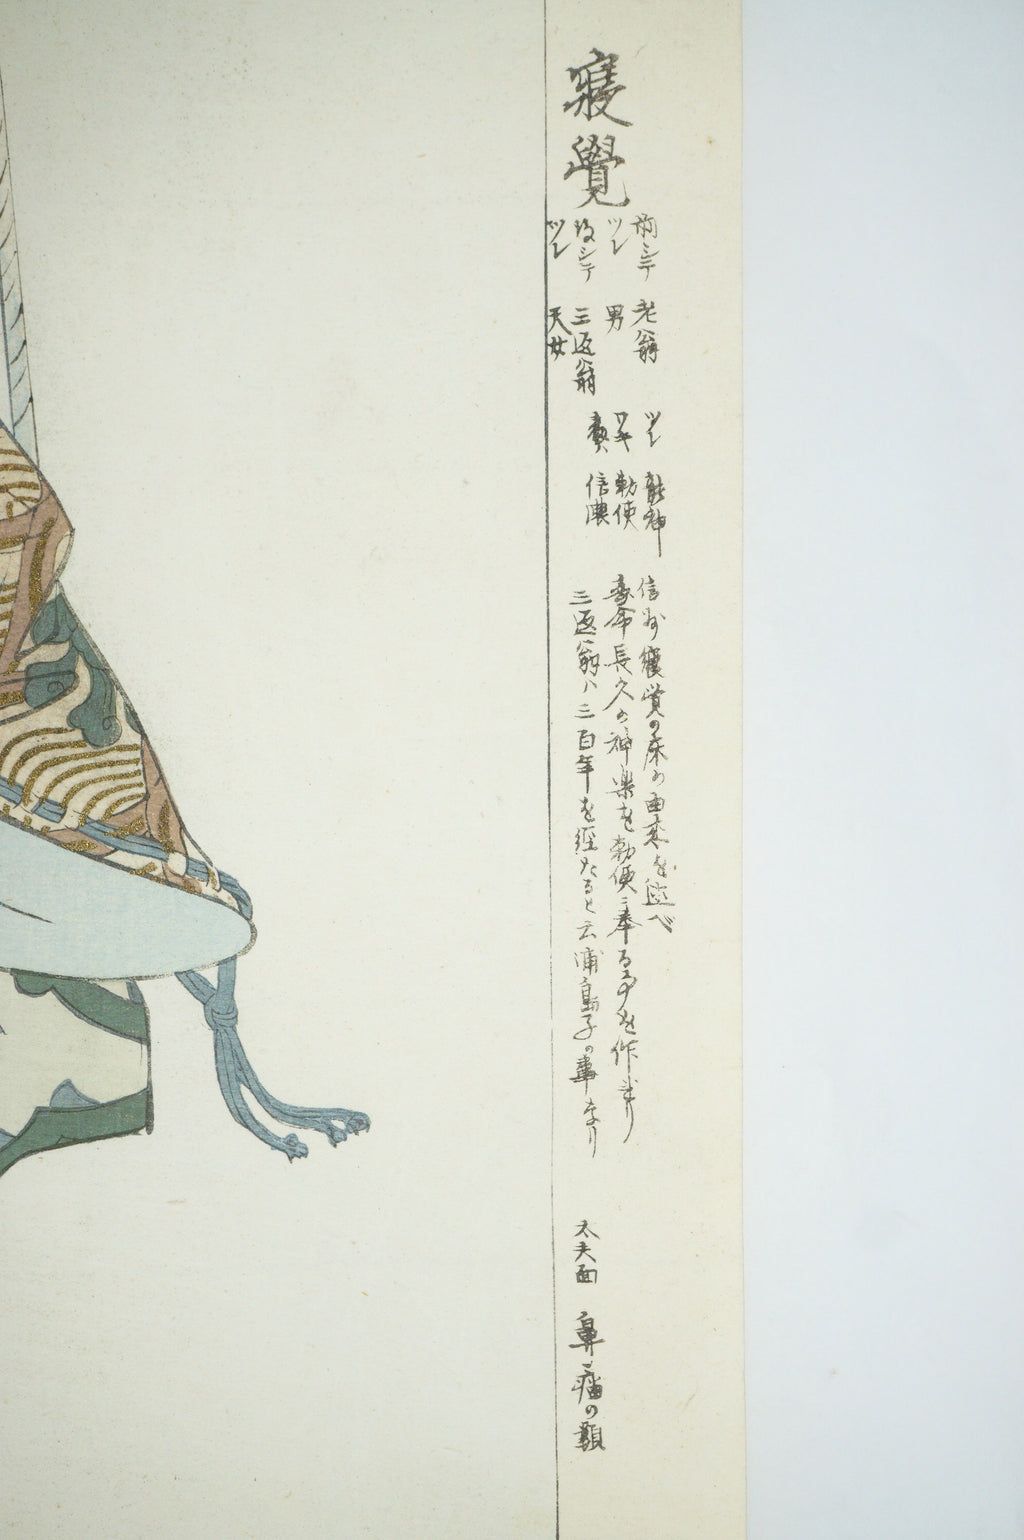 寝覺
前シテ 老翁
ツレ 男
後シテ 三返翁
ツレ 天女
ツレ 龍神
ワキ 勅使
処 信濃
信州寝覚の床の由来を述べ
寿命長久の神楽を勅使ニ奉る事を作れり
三返翁ハ三百年を經たると云浦島子の事なり
太夫面 鼻瘤の顔